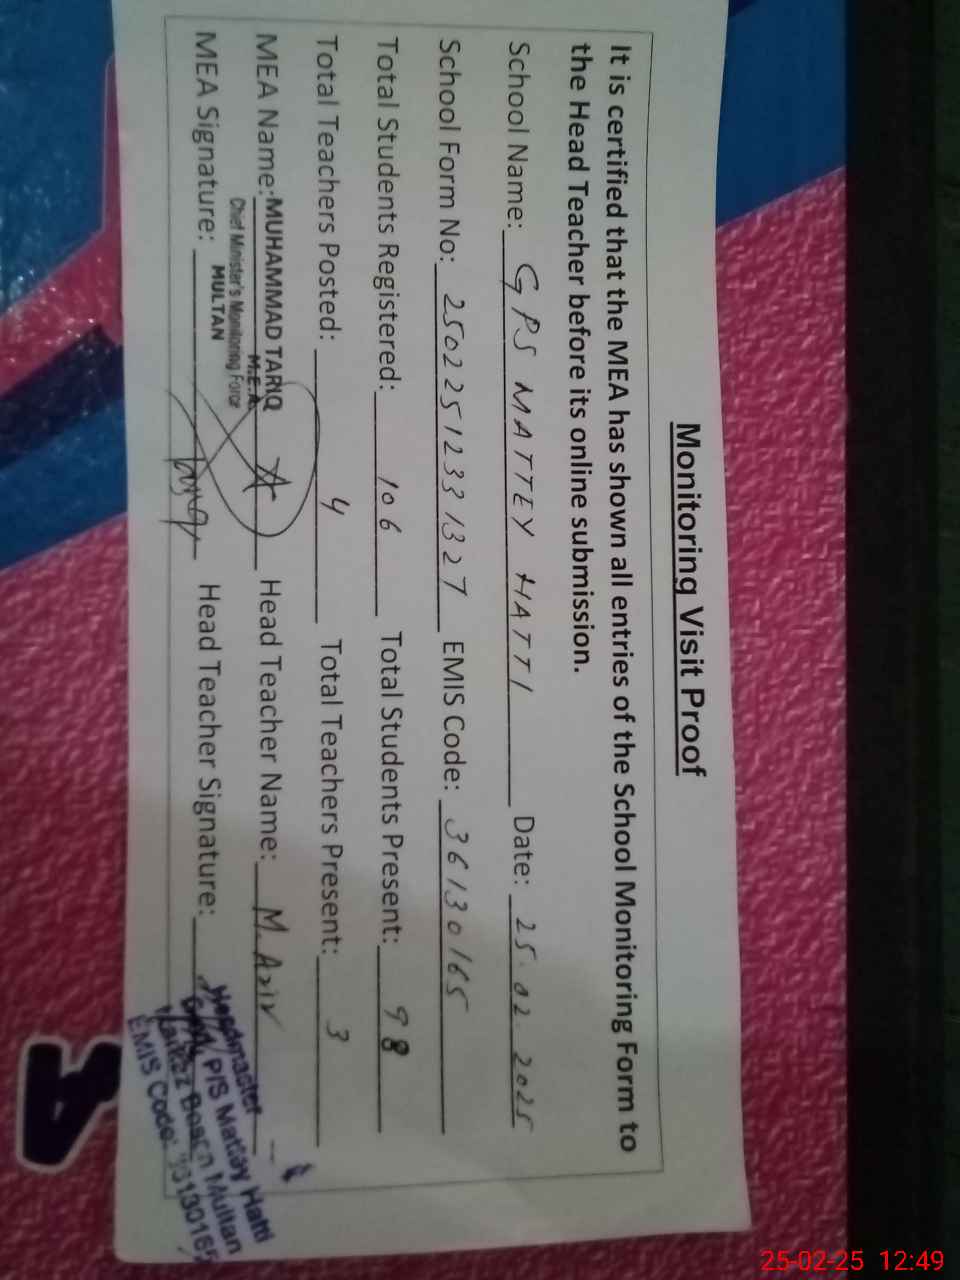 Monitoring Visit Proof
It is certified that the MEA has shown all entries of the School Monitoring Form to
the Head Teacher before its online submission.
School Name: GPS MATTEY HATTI Date: 25.02.2025
School Form No: 2502251233 1327 EMIS Code: 36130165
Total Students Registered: 106 Total Students Present: 98
Total Teachers Posted: 4 Total Teachers Present: 3
MEA Name: MUHAMMAD TARIQ Head Teacher Name: M. Aziz
M.E.A
Chief Minister's Monitoring Force
MULTAN
MEA Signature: Head Teacher Signature:
Headmaster
P/S Mattay Hatti
Markaz Bosan Multan
EMIS Code: 36130165
25-02-25 12:49